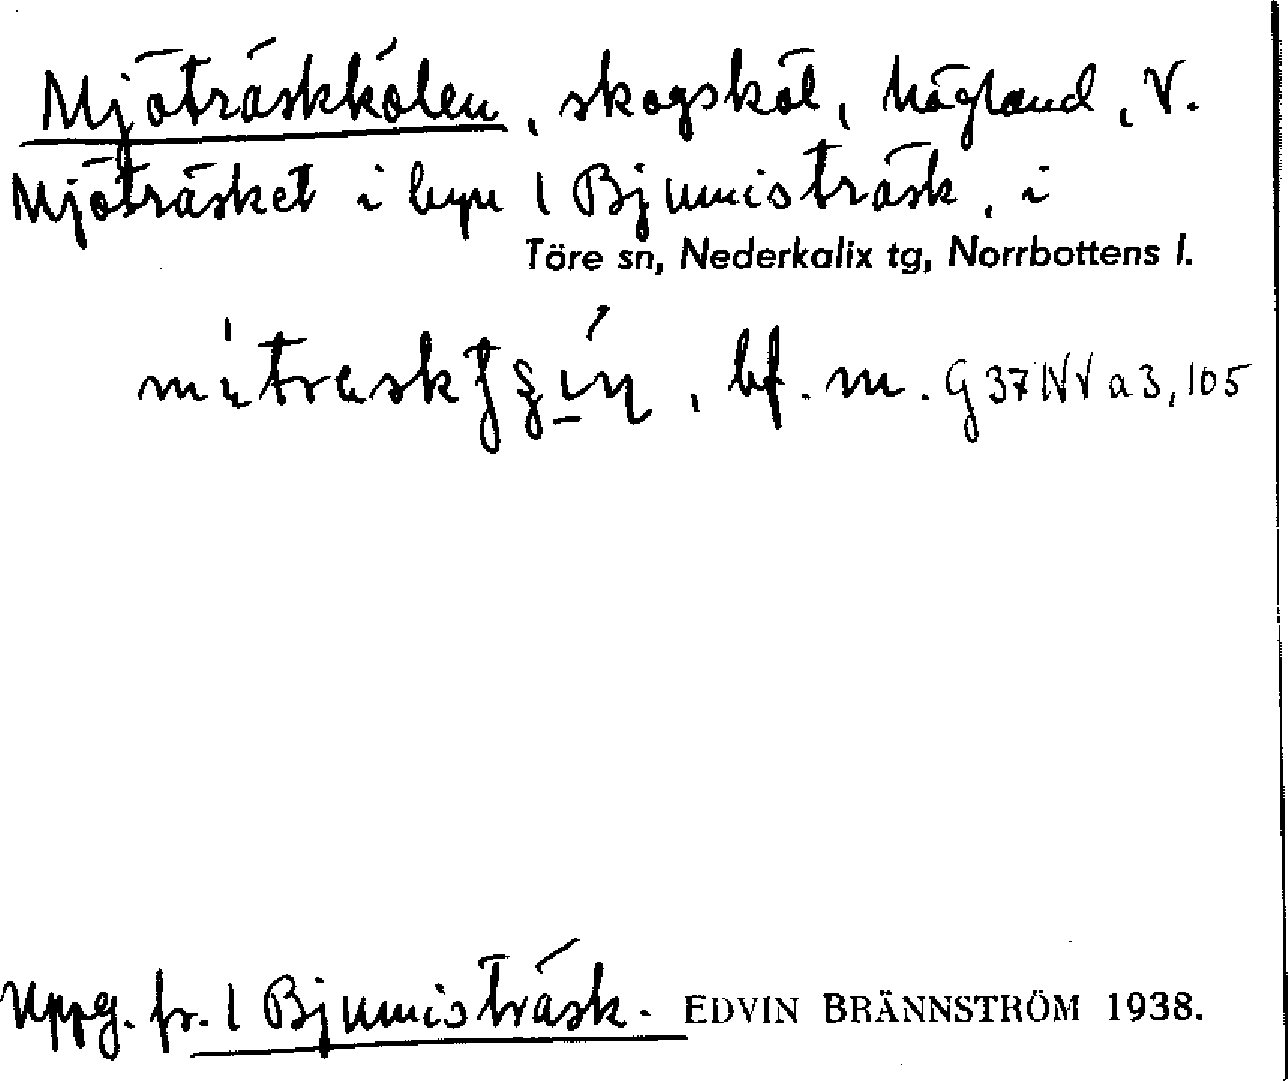 Mjöträskkölen, skogsköl, högland, V.
Mjöträsket i byn 1 Bjumisträsk, i
Töre sn, Nederkalix tg, Norrbottens l.
bf. m. G37NV a3, 105
Uppg. fr. 1 Bjumisträsk. EDVIN BRÄNNSTRÖM 1938.